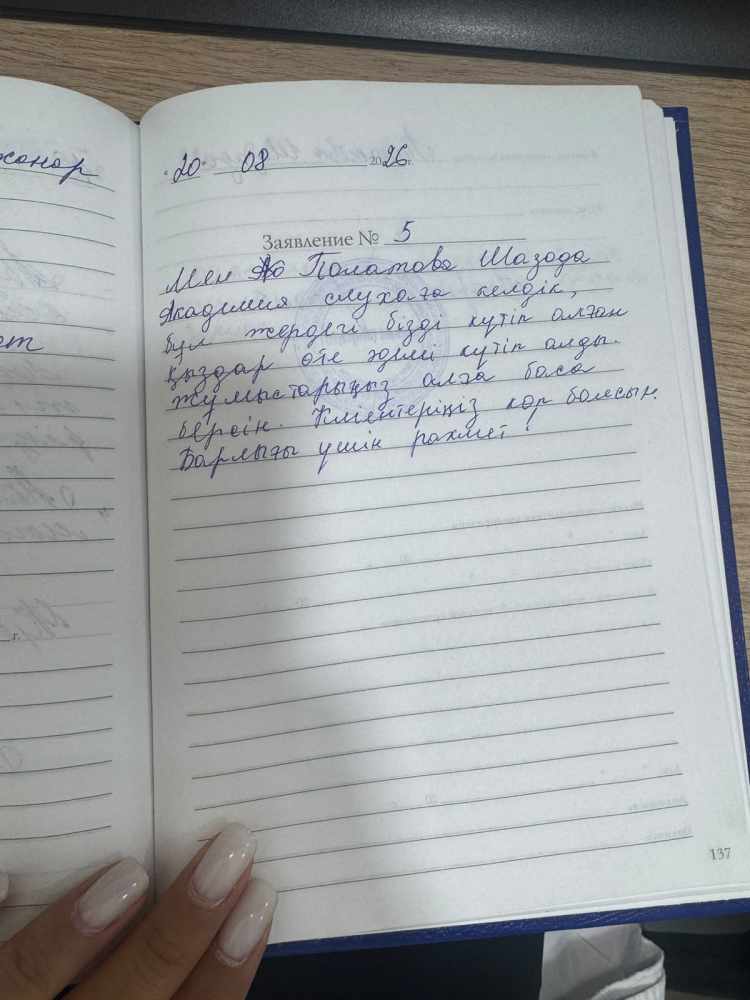 "20" 08 2026г.
Заявление № 5
Мен Полатова Шазода
Академия слухаға келдік,
бұл жердегі бізді күтіп алған
қыздар өте әдемі күтіп алды.
Жұмыстарыңыз алға баса
берсін. Клиентеріңіз көп болсын.
Барлығы үшін рахмет!
137